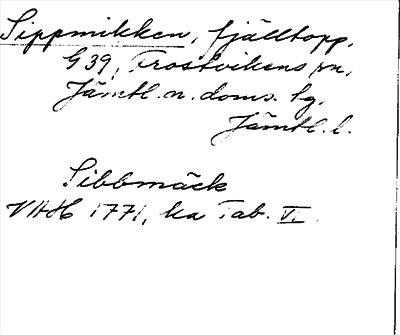 Sippmikken, fjälltopp,
G 39, Frostvikens sn,
Jämtl. n. doms. lg,
Jämtl. l.
Sibbmäck
VAH 1771, ka Tab. VI.